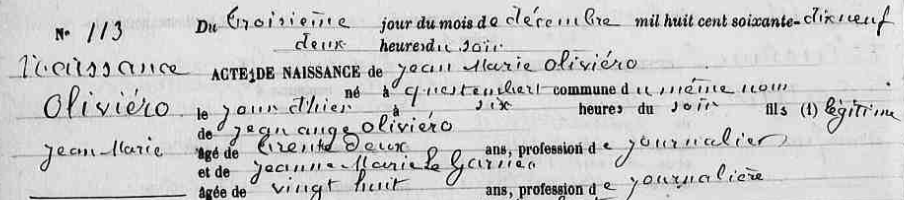 No 113 Du troisième jour du mois de décembre mil huit cent soixante-dixneuf
deux heures du soir
Naissance ACTE DE NAISSANCE de jean Marie oliviéro
Oliviéro né à questembert commune du même nom
le jour d'hier à six heures du soir fils (1) légitime
de jean ange oliviéro
jean Marie âgé de trente deux ans, profession de journalier
et de jeanne Marie le Garnec
âgée de vingt huit ans, profession de journalière